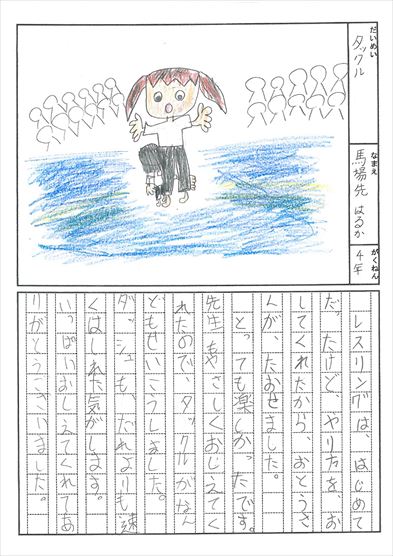 だいめい
タックル
なまえ
馬場先 はるか
がくねん
4年
レスリングは、はじめて
だったけど、やり方を、お
してくれたから、おとうさ
んが、たおせました。
とっても楽しかったです。
先生もやさしくおしえてく
れたので、タックルがなん
どもせいこうしました。
ダッシュも、だれよりも速
くはしれた気がします。
いっぱいおしえてくれてあ
りがとうございました。